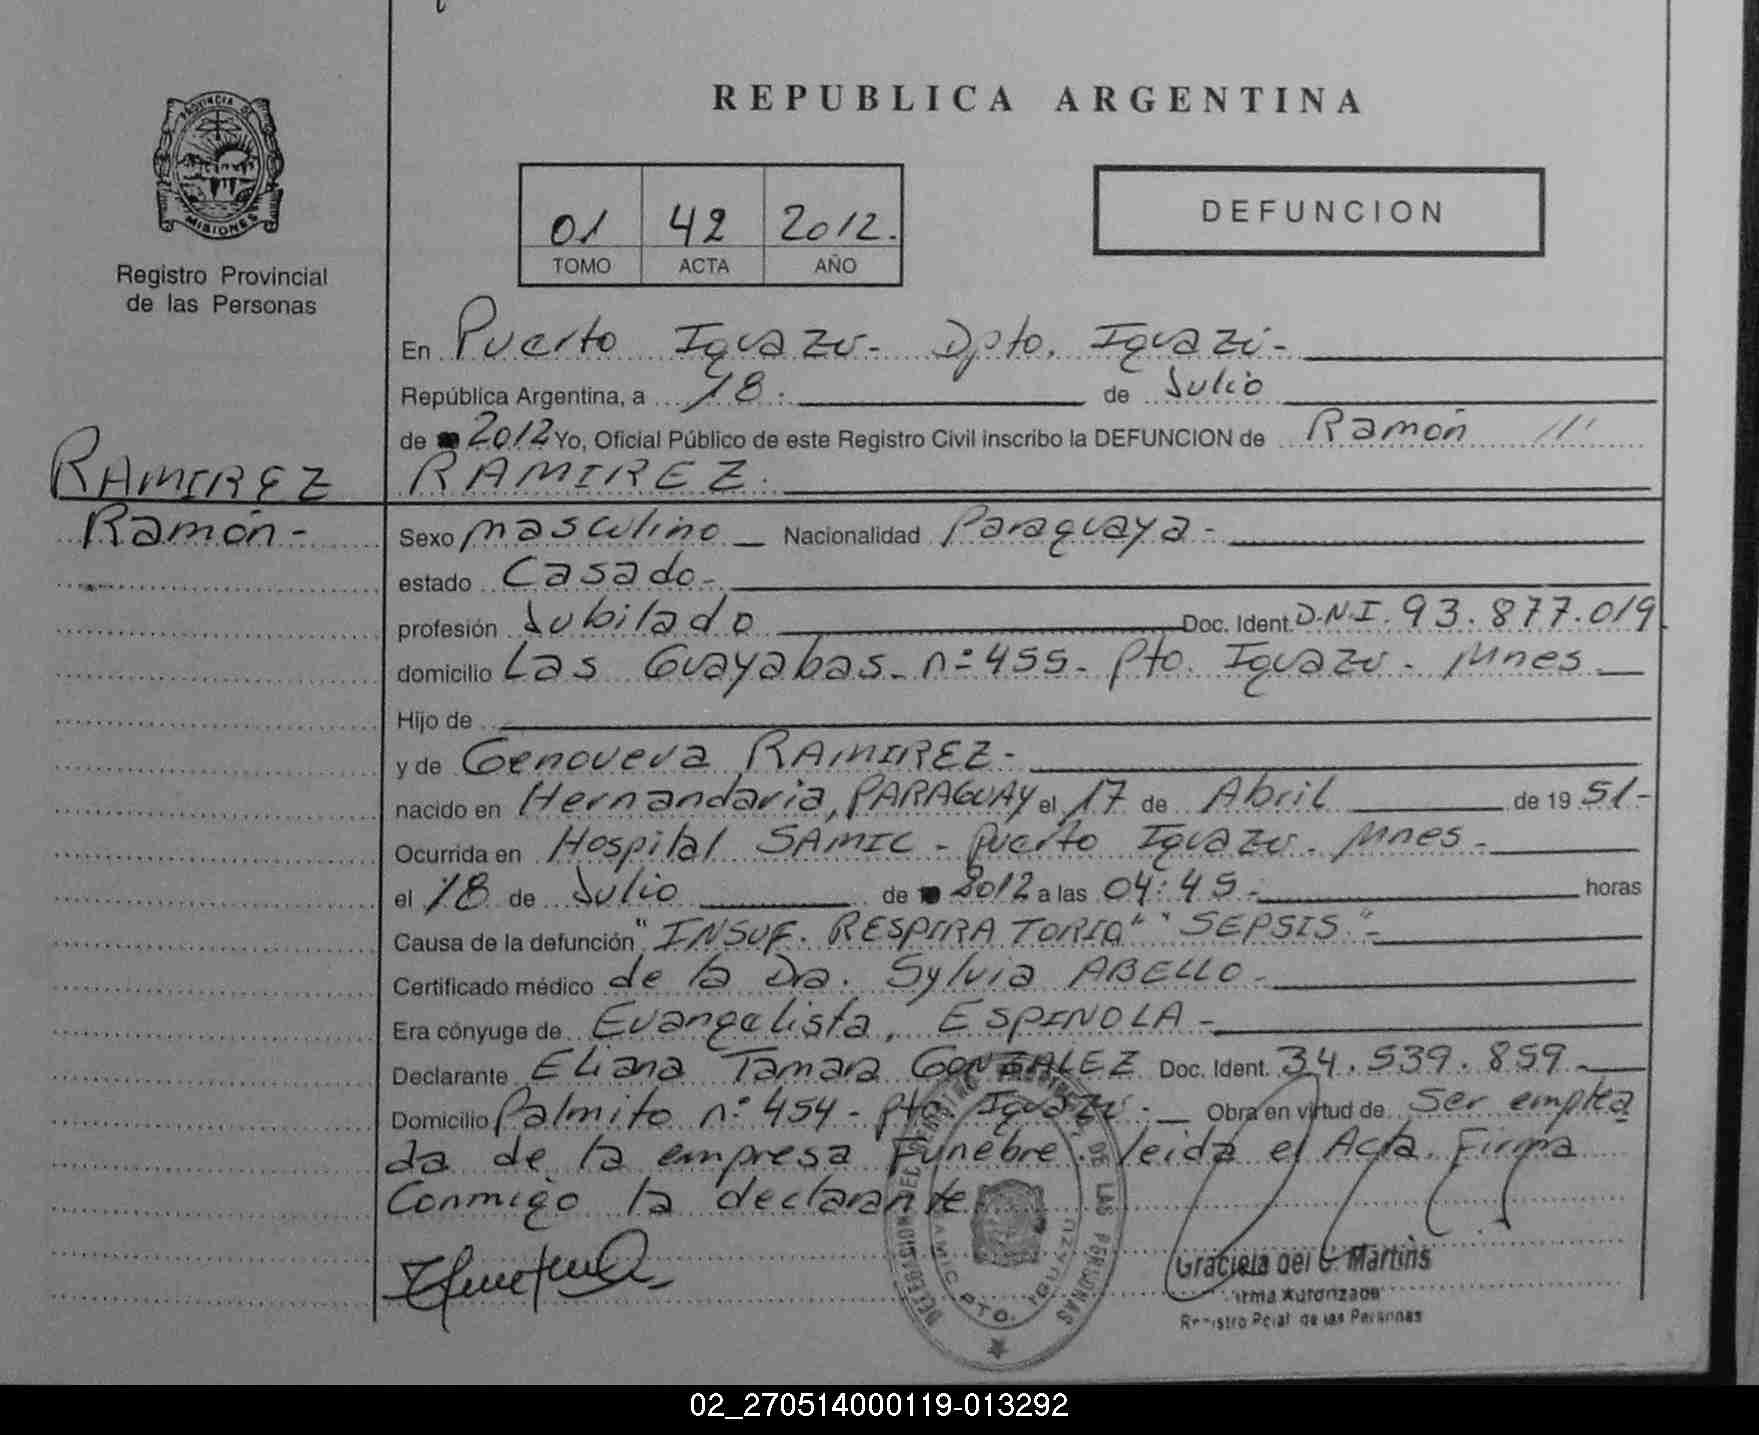 REPUBLICA ARGENTINA
PROVINCIA DE
MISIONES
Registro Provincial
de las Personas
01 42 2012.
TOMO ACTA AÑO
DEFUNCION
En Puerto Iguazú- Dpto. Iguazú-
República Argentina, a 18. de Julio
de 2012 Yo, Oficial Público de este Registro Civil inscribo la DEFUNCION de Ramón
RAMIREZ RAMIREZ.
Ramón-
Sexo masculino Nacionalidad Paraguaya-
estado Casado-
profesión Jubilado Doc. Ident. D.N.I. 93.877.019
domicilio Las Guayabas nº 455- Pto. Iguazú- Mnes
Hijo de
y de Genoveva RAMIREZ-
nacido en Hernandaria, PARAGUAY el 17 de Abril de 19 51-
Ocurrida en Hospital SAMIC - Puerto Iguazú. Mnes-
el 18 de Julio de 2012 a las 04:45- horas
Causa de la defunción "INSUF. RESPIRATORIA" "SEPSIS"-
Certificado médico de la Dra. Sylvia ABELLO-
Era cónyuge de Evangelista, ESPINOLA-
Declarante Eliana Tamara GONZALEZ Doc. Ident. 34.539.859-
Domicilio Palmito nº 454- Pto. Iguazú- Obra en virtud de Ser emplea
da de la empresa Funebre. leida el Acta. Firma
Conmigo la declarante
DE LAS PERSONAS
PTO. IGUAZU
Graciela del C. Martins
Firma Autorizada
Registro Pcial. de las Personas
02_270514000119-013292